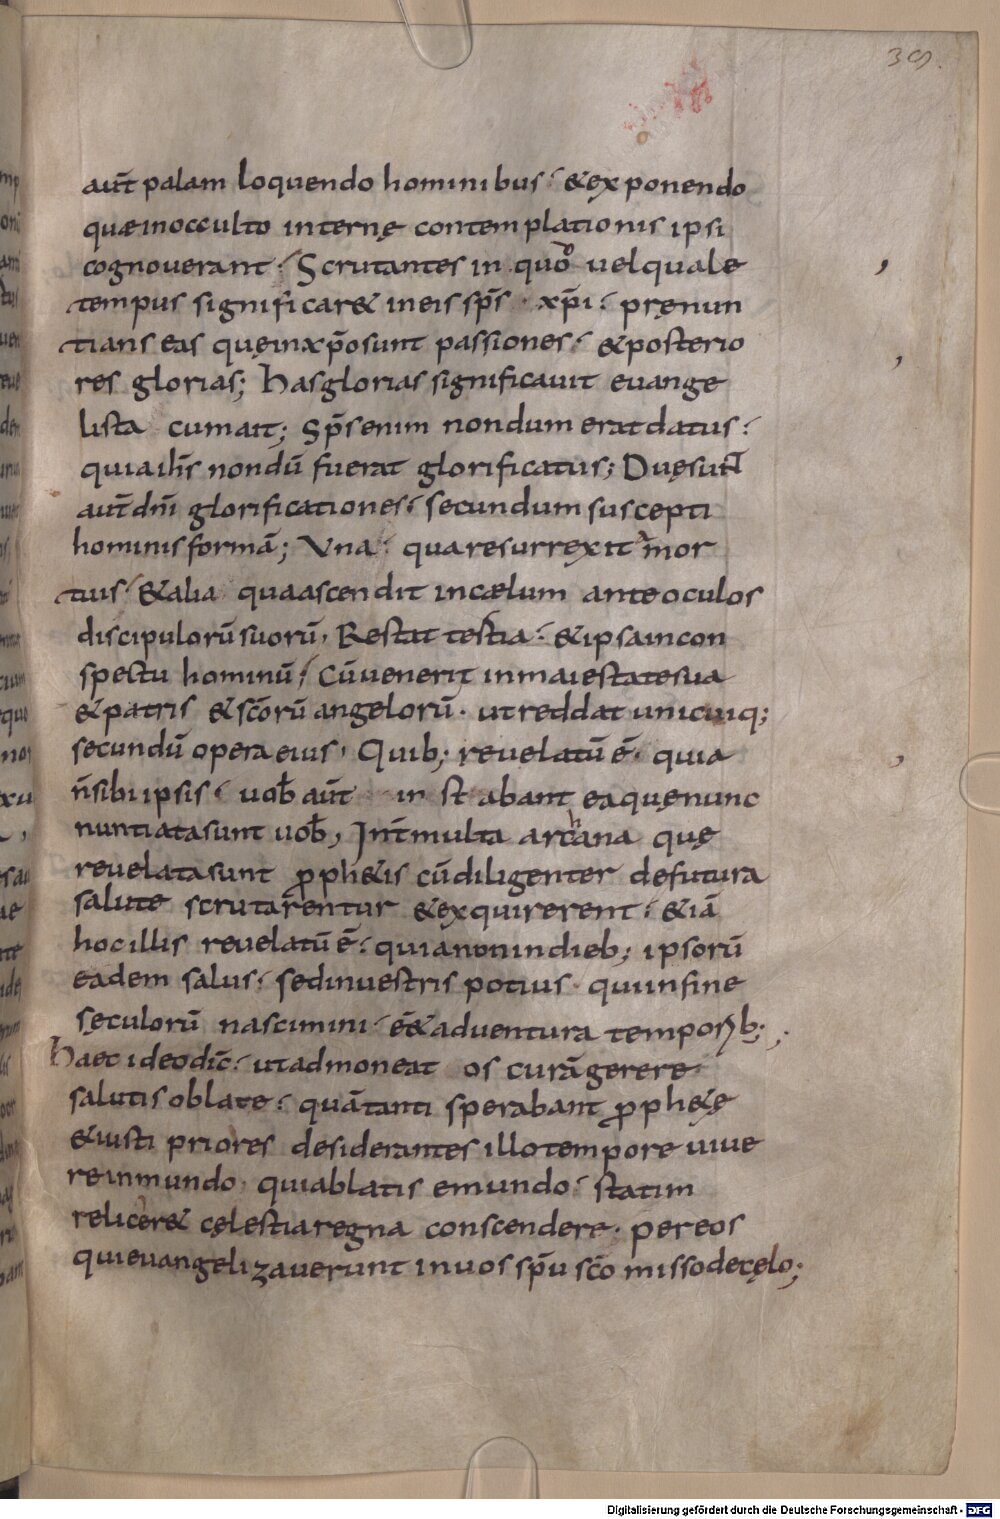 39.
aut̄ palam loquendo hominibus; &exponendo
quæinocculto internę contemplationis ipsi
cognouerant; Scrutantes in quo uelquale
tempus significar& ineis sp̄s xp̄i; pręnun
tians eas quęinxp̄osunt passiones; &posterio
res glorias; hasglorias significauit euange
lista cumait; Sp̄senim nondum eratdatus;
quiaih̄s nondū fuerat glorificatus; Duęsunt
aut̄dn̄i glorificationes; secundum suscepti
hominisformā; Vna; quaresurrexit mor
tuus; &alia quaascendit incælum anteoculos
discipulorūsuorū, Restat tertia; &ipsaincon
spectu hominū; Cūuenerit inmaiestatesua
&patris &sc̄orū angelorū. utreddat unicuiq;
secundū opera eius, Quib; reuelatū ē. quia
n̄sibiipsis; uob̄ aut̄ in st abant eaquęnunc
nuntiatasunt uob̄, Int̄multa archana quę
reuelatasunt ꝓph&is cūdiligenter defutura
salute scrutarentur &exquirerent; &iā
hocillis reuelatū ē; quianonindieb; ipsorū
eadem salus; sedinuestris potius. quiinfine
sęculorū nascimini; ē&aduentura temporꝝb;
haec ideodic̄; utadmoneat os curāgerere
salutis oblate; quātanti sperabant ꝓph&ę
&iusti priores desiderantes illotempore uiue
reinmundo. quiablatis emundo; statim
relicer& cęlestiaregna conscendere. pereos
quieuangelizauerunt inuos sp̄u sc̄o missodecęlo;
Digitalisierung gefördert durch die Deutsche Forschungsgemeinschaft - DFG